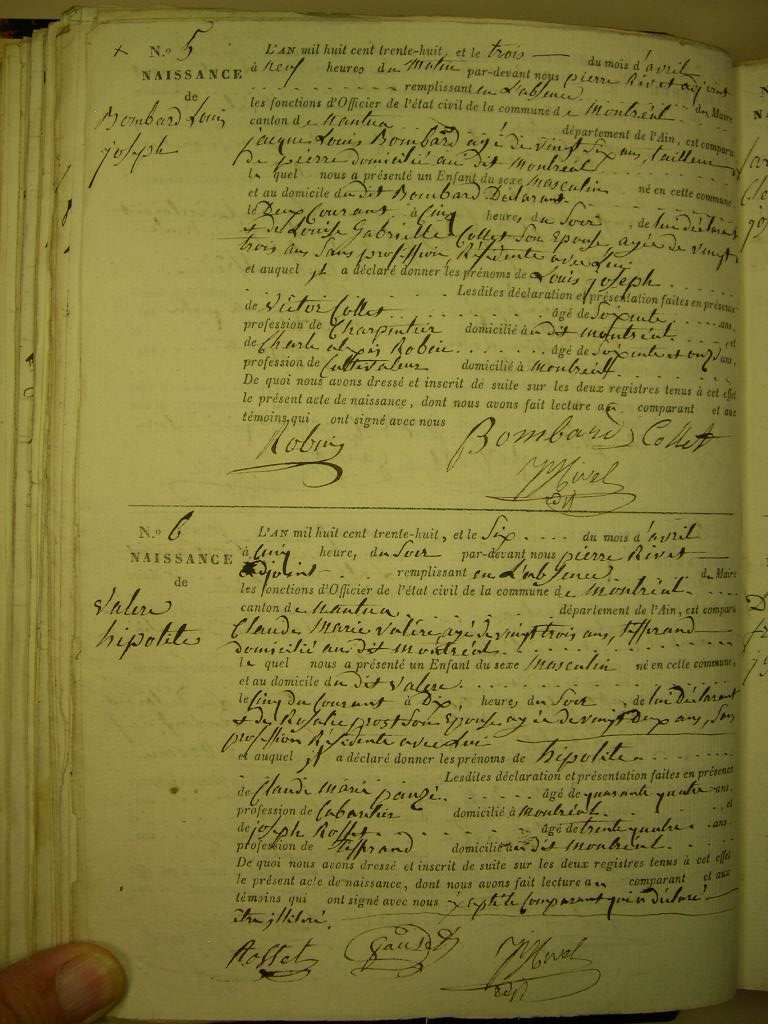 N.º 5
NAISSANCE
de
Bombard Louis
joseph
L'AN mil huit cent trente-huit, et le trois du mois d'avril
à neuf heures du Matin par-devant nous pierre Rivet adjoint
remplissant en L'absence du Maire
les fonctions d'Officier de l'état civil de la commune de Montréal
canton de Nantua département de l'Ain, est comparu
jacque Louis Bombard agé de vingt six ans, tailleur
de pierre domicilié au dit Montréal
le quel nous a présenté un Enfant du sexe Masculin né en cette commune
et au domicile du dit Bombard Déclarant
le Deux Courant à Cinq heures du Soir, de lui déclarant
et de Louise Gabrielle Collet Son Epouse, agée de vingt
trois ans Sans profession Résidente avec Lui
et auquel il a déclaré donner les prénoms de Louis joseph
Lesdites déclaration et présentation faites en présence
de Victor Collet âgé de Soixente ans,
profession de Charpentier domicilié au dit Montréal et
de Charle alexis Robin âgé de Soixente et onze ans,
profession de Cultivateur domicilié à Montréal
De quoi nous avons dressé et inscrit de suite sur les deux registres tenus à cet effet
le présent acte de naissance, dont nous avons fait lecture au comparant et aux
témoins qui ont signé avec nous
Robin Bombard Collet
Rivet
adjt
N.º 6
NAISSANCE
de
Valere
hipolite
L'AN mil huit cent trente-huit, et le Six du mois d'avril
à Cinq heure, du Soir par-devant nous pierre Rivet
adjoint remplissant en L'absence du Maire
les fonctions d'Officier de l'état civil de la commune de Montréal
canton de Nantua département de l'Ain, est comparu
Claude Marie Valère, agé de vingt trois ans, tisserand
domicilié au dit Montréal
le quel nous a présenté un Enfant du sexe Masculin né en cette commune,
et au domicile du dit Valere
le Cinq du Courant à Dix, heures du Soir, de lui Déclarant
et de Rosalie prost Son Epouse agée de vingt Deux ans, Sans
profession Résidente avec Lui
et auquel il a déclaré donner les prénoms de hipolite
Lesdites déclaration et présentation faites en présence
de Claude Marie âgé de quarante quatre ans,
profession de Cabaretier domicilié à Montréal et
de joseph Rosset âgé de trente quatre ans
profession de tisserand domicilié au dit Montréal
De quoi nous avons dressé et inscrit de suite sur les deux registres tenus à cet effet
le présent acte de naissance, dont nous avons fait lecture au comparant et aux
témoins qui ont signé avec nous excepté le Comparant qui a déclaré
être illitéré
Rosset Rivet
adjt